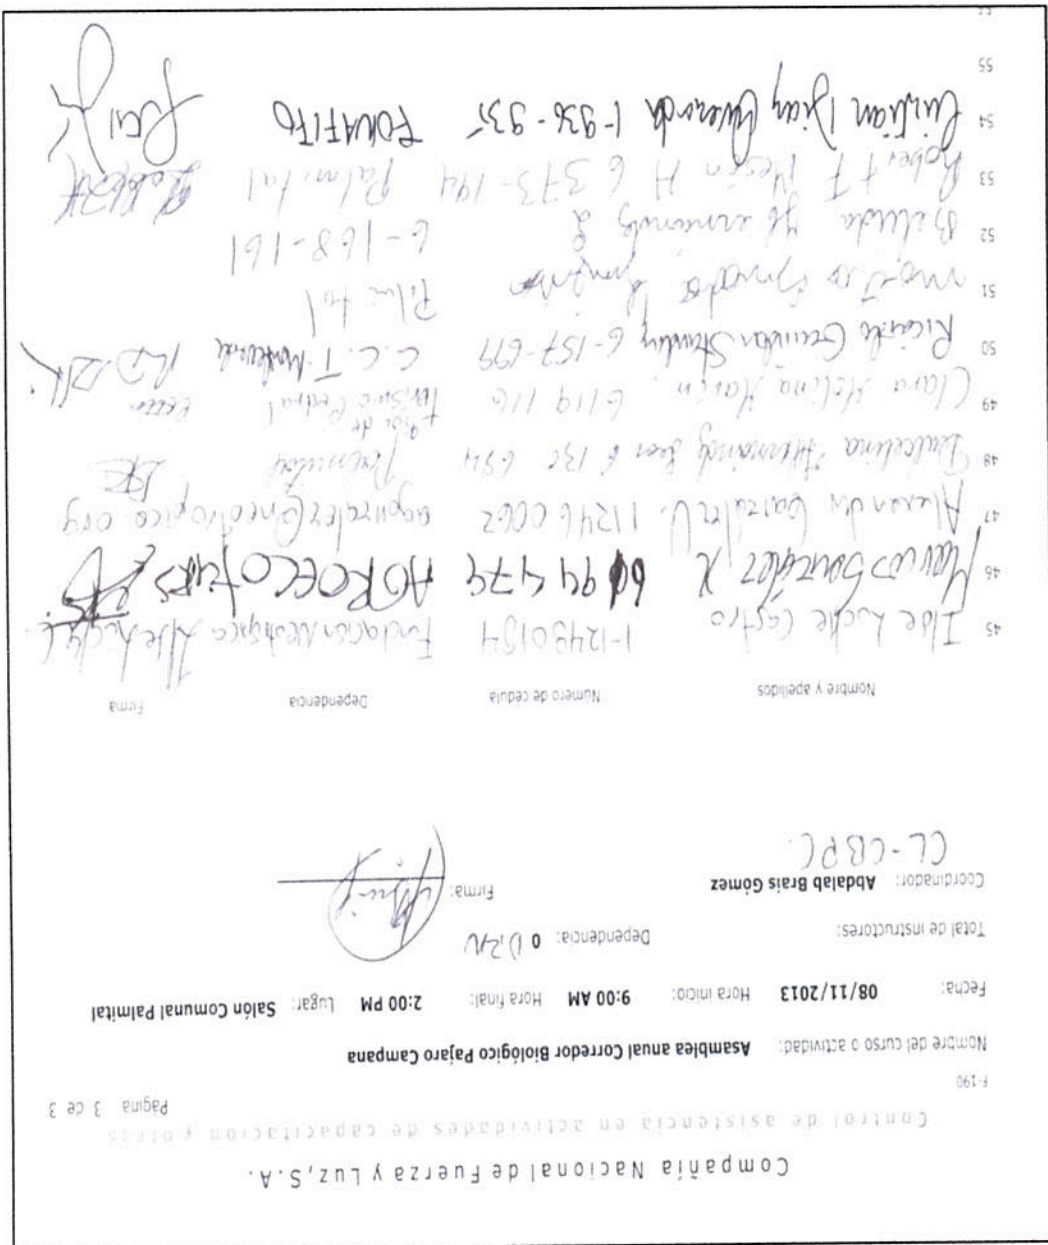 Compañía Nacional de Fuerza y Luz, S.A.
Control de asistencia en actividades de capacitación y otros
F-190 Página 3 de 3
Nombre del curso o actividad: Asamblea anual Corredor Biológico Pajaro Campana
Fecha: 08/11/2013 Hora inicio: 9:00 AM Hora final: 2:00 PM Lugar: Salón Comunal Palmital
Total de instructores: Dependencia: 0
Coordinador: Abdalab Brais Gómez Firma:
CL-CBPC.
Nombre y apellidos Número de cédula Dependencia Firma
45 Ilse Loche Castro 1-12480194 Fundación Neotrópica
46 Mario González 6 94 474 AGROECOTURS
47 Alexander González U. 11246 0062 agonzalez@neotropica.org
48 Dulcelina 6 130 694 Palmital
49 Clara Molina Marín. 6 119 116
50 Ricardo 6-157-679 C.C.T.
51 Palmital
52 6-168-161
53 Robert F 6 373-194 Palmital
54 Cristian Diaz Quesada 1-936-935 FONAFIFO
55